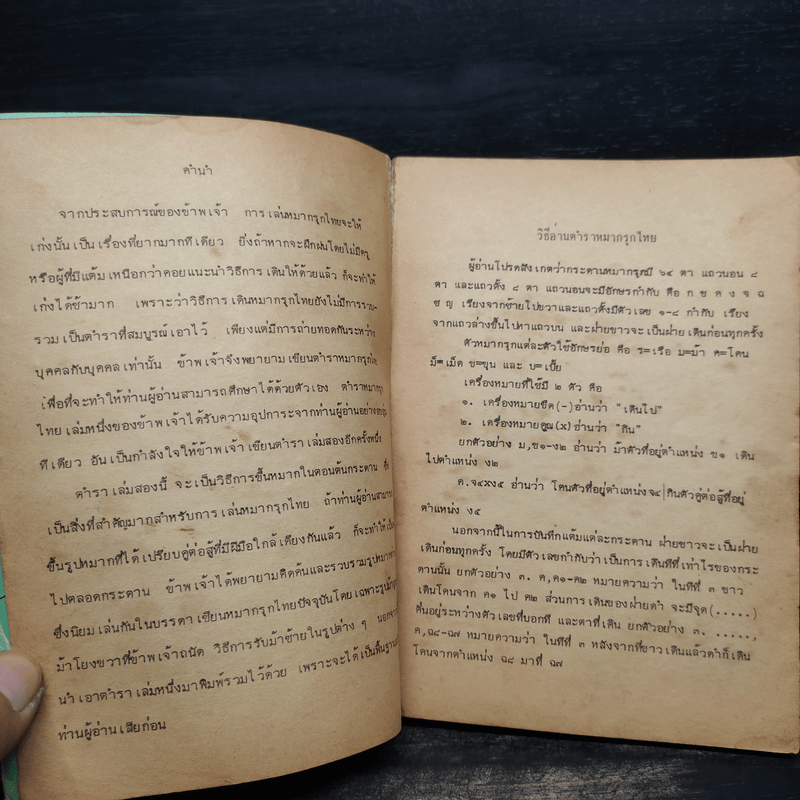 คำนำ
จากประสบการณ์ของข้าพเจ้า การเล่นหมากรุกไทยจะให้
เก่งนั้น เป็นเรื่องที่ยากมากทีเดียว ยิ่งถ้าหากจะฝึกฝนโดยไม่มีครู
หรือผู้ที่มีแต้มเหนือกว่าคอยแนะนำวิธีการเดินให้ด้วยแล้ว ก็จะทำให้
เก่งได้ช้ามาก เพราะว่าวิธีการเดินหมากรุกไทยยังไม่มีการรวบ-
รวมเป็นตำราที่สมบูรณ์เอาไว้ เพียงแต่มีการถ่ายทอดกันระหว่าง
บุคคลกับบุคคลเท่านั้น ข้าพเจ้าจึงพยายามเขียนตำราหมากรุกไทย
เพื่อที่จะทำให้ท่านผู้อ่านสามารถศึกษาได้ด้วยตัวเอง ตำราหมากรุก
ไทยเล่มหนึ่งของข้าพเจ้าได้รับความอุปการะจากท่านผู้อ่านอย่าง
ทีเดียว อันเป็นกำลังใจให้ข้าพเจ้าเขียนตำราเล่มสองอีกครั้งหนึ่ง
ตำราเล่มสองนี้ จะเป็นวิธีการขึ้นหมากในตอนต้นกระดาน ซึ่ง
เป็นสิ่งที่สำคัญมากสำหรับการเล่นหมากรุกไทย ถ้าท่านผู้อ่านสามารถ
ขึ้นรูปหมากที่ได้เปรียบคู่ต่อสู้ที่มีฝีมือใกล้เคียงกันแล้ว ก็จะทำให้
ไปตลอดกระดาน ข้าพเจ้าได้พยายามคิดค้นและรวบรวมรูปหมากต่าง
ซึ่งนิยมเล่นกันในบรรดาเซียนหมากรุกไทยปัจจุบันโดยเฉพาะรูปม้าผูก
ม้าโยงขวาที่ข้าพเจ้าถนัด วิธีการรับม้าซ้ายในรูปต่าง ๆ นอกจาก
นำเอาตำราเล่มหนึ่งมาพิมพ์รวมไว้ด้วย เพราะจะได้เป็นพื้นฐาน
ท่านผู้อ่านเสียก่อน
วิธีอ่านตำราหมากรุกไทย
ผู้อ่านโปรดสังเกตว่ากระดานหมากรุกมี ๖๔ ตา แถวนอน ๘
ตา และแถวตั้ง ๘ ตา แถวนอนจะมีอักษรกำกับ คือ ก ข ค ง จ ฉ
ช ญ เรียงจากซ้ายไปขวาและแถวตั้งมีตัวเลข ๑-๘ กำกับ เรียง
จากแถวล่างขึ้นไปหาแถวบน และฝ่ายขาวจะเป็นฝ่ายเดินก่อนทุกครั้ง
ตัวหมากรุกแต่ละตัวใช้อักษรย่อ คือ ร=เรือ ม=ม้า ค=โคน
ม็=เม็ด ข=ขุน และ บ=เบี้ย
เครื่องหมายที่ใช้มี ๒ ตัว คือ
๑. เครื่องหมายขีด(-)อ่านว่า "เดินไป"
๒. เครื่องหมายคูณ(x)อ่านว่า "กิน"
ยกตัวอย่าง ม,ข๑-ง๒ อ่านว่า ม้าตัวที่อยู่ตำแหน่ง ข๑ เดิน
ไปตำแหน่ง ง๒
ค.จ๔xง๕ อ่านว่า โคนตัวที่อยู่ตำแหน่งจ๔ กินตัวคู่ต่อสู้ที่อยู่
ตำแหน่ง ง๕
นอกจากนี้ในการบันทึกแต้มแต่ละกระดาน ฝ่ายขาวจะเป็นฝ่าย
เดินก่อนทุกครั้ง โดยมีตัวเลขกำกับว่าเป็นการเดินทีที่เท่าไรของกระ
ดานนั้น ยกตัวอย่าง ๓. ค,ค๑-ค๒ หมายความว่า ในทีที่ ๓ ขาว
เดินโคนจาก ค๑ ไป ค๒ ส่วนการเดินของฝ่ายดำ จะมีจุด(.....)
คั่นอยู่ระหว่างตัวเลขที่บอกที และตาที่เดิน ยกตัวอย่าง ๓. .....,
ค,ฉ๘-ฉ๗ หมายความว่า ในทีที่ ๓ หลังจากที่ขาวเดินแล้วดำก็เดิน
โคนจากตำแหน่ง ฉ๘ มาที่ ฉ๗